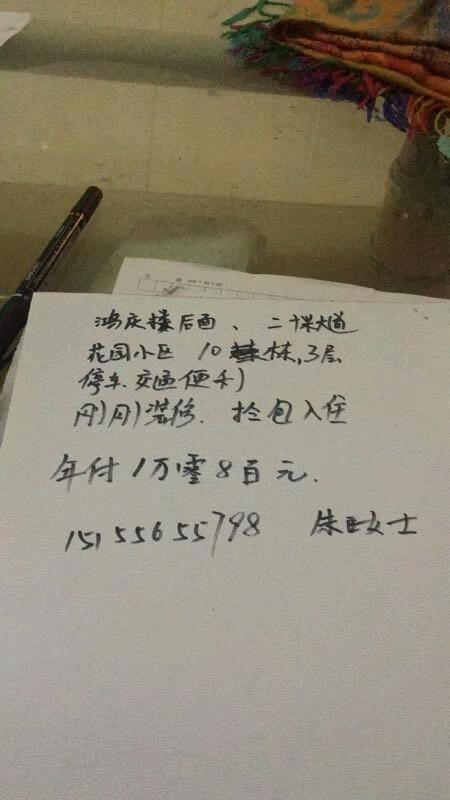 鸿庆楼后面、二
花园小区 10栋,3层
停车交通便利
刚刚装修. 拎包入住
年付1万零8百元.
15155655798 朱女士